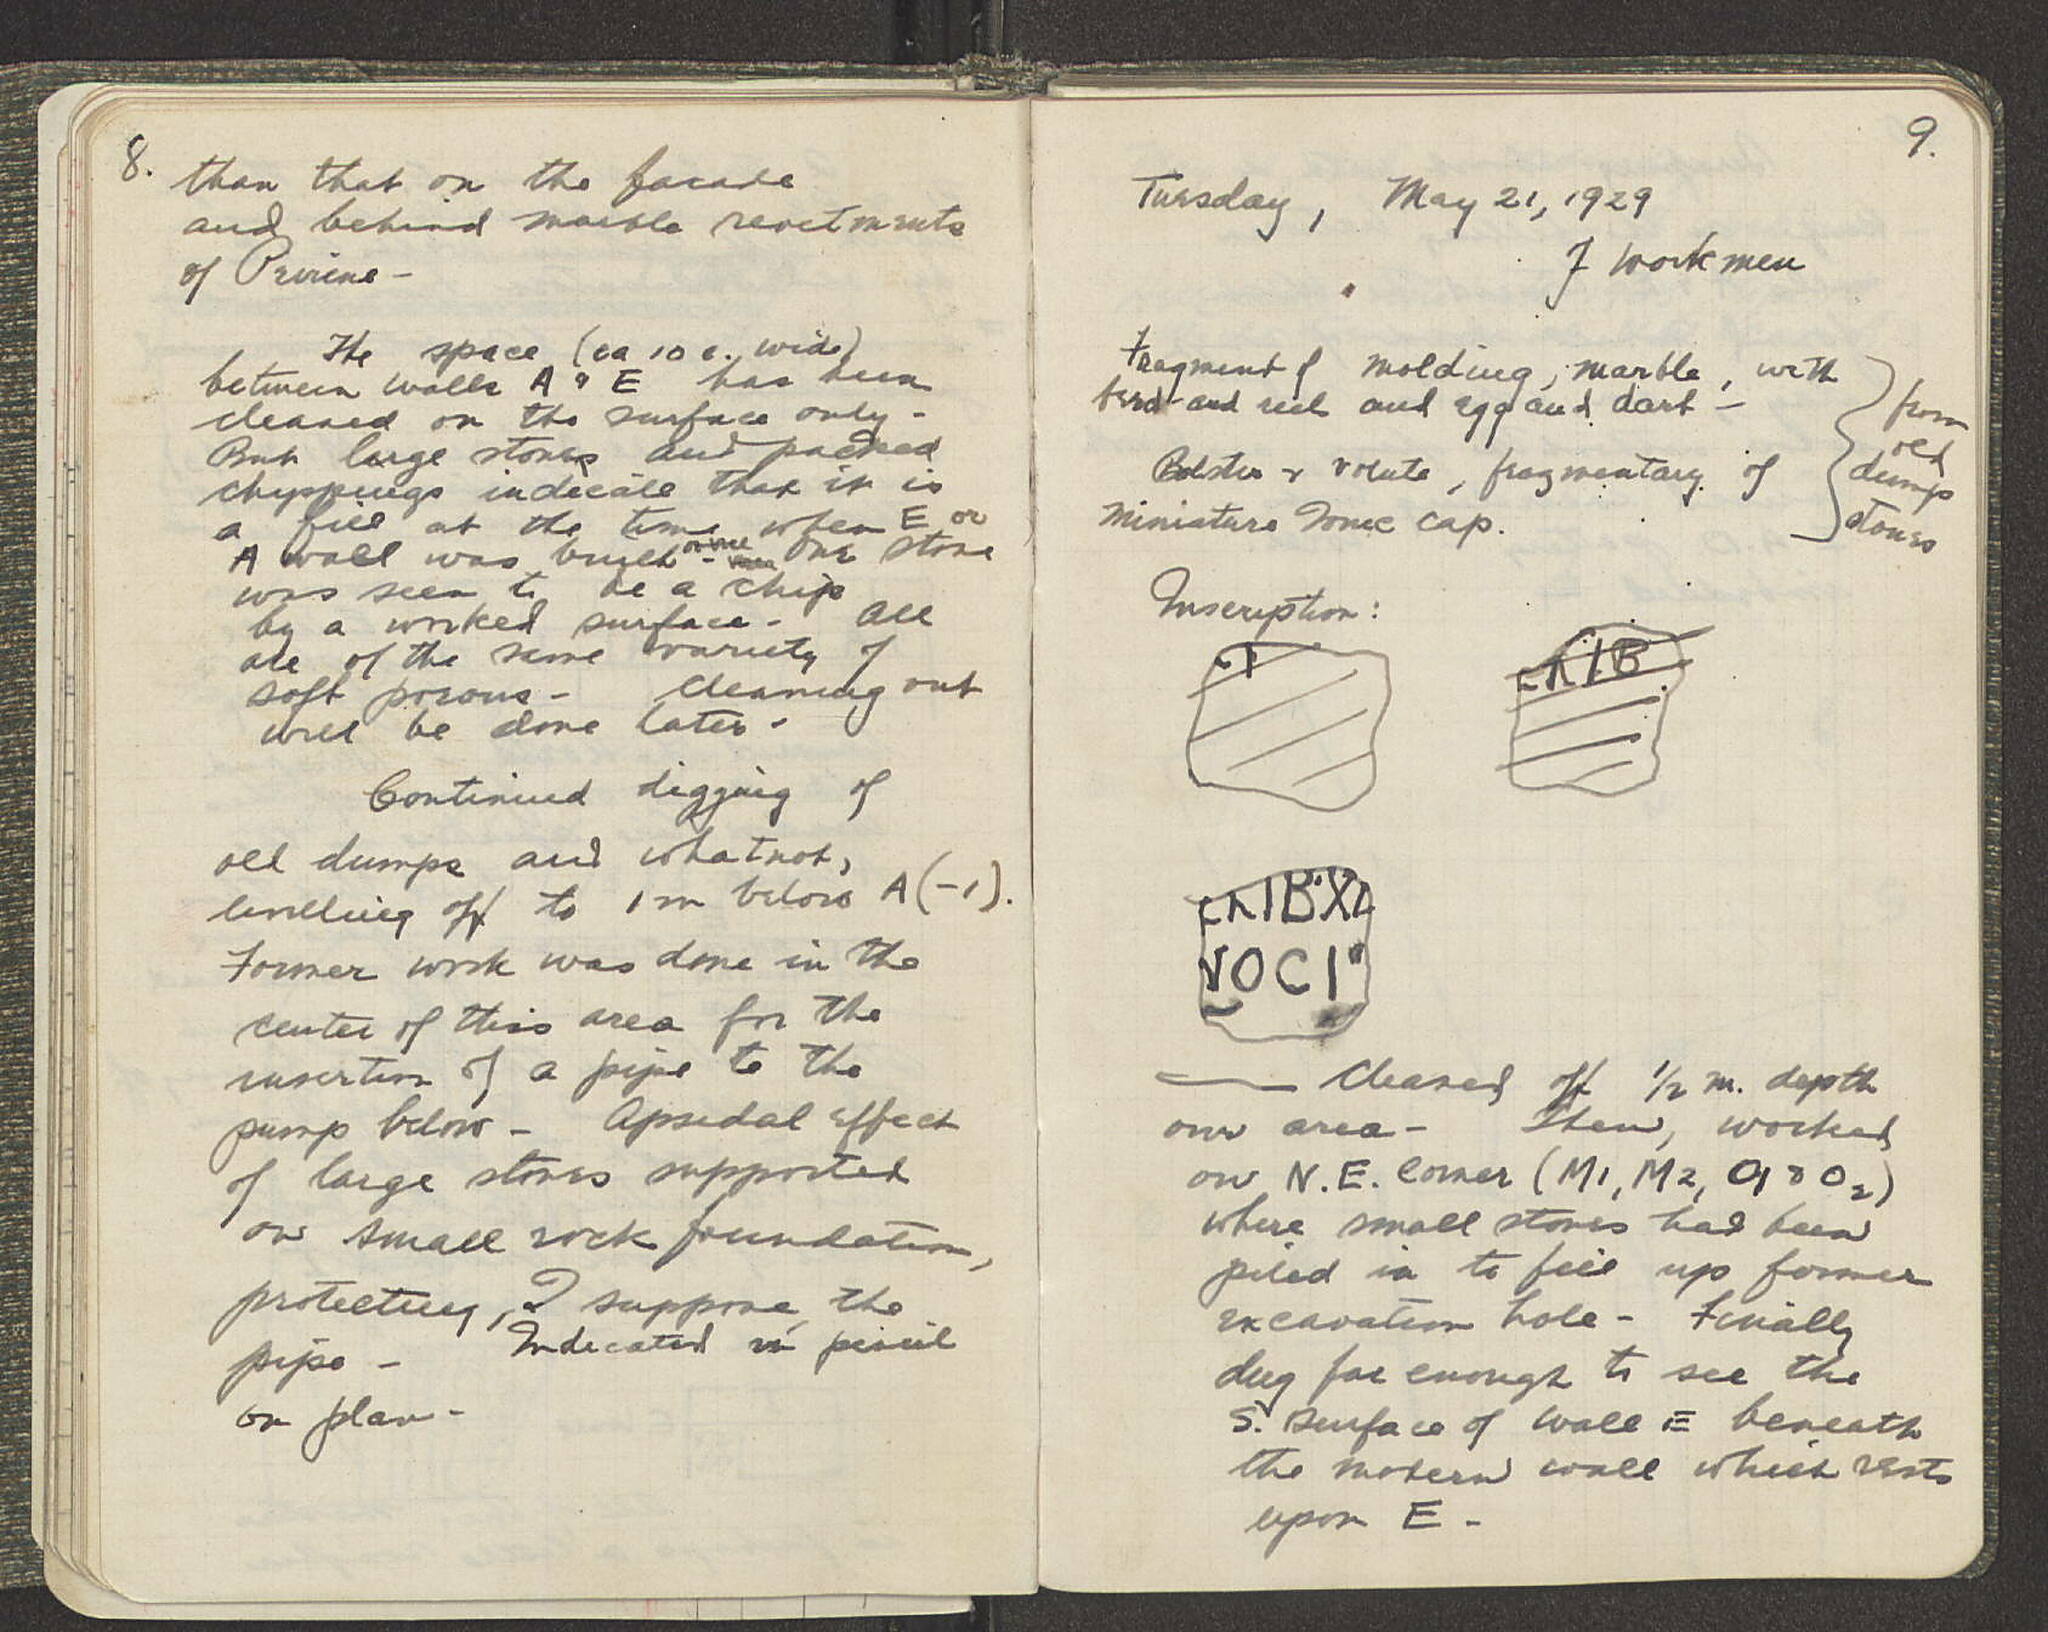 8.
than that on the facade
and behind marble revetments
of Peirene -
The space (ca 10 c. wide)
between walls A & E has been
cleaned on the surface only -
But large stones and packed
chippings indicate that it is
a fill at the time when E or
A wall was built - One stone
was seen to be a chip
by a worked surface - All
are of the same variety of
soft porous - Cleaning out
will be done later -
Continued digging of
old dumps and whatnot,
levelling off to 1 m below A (-1).
Former work was done in the
center of this area for the
insertion of a pipe to the
pump below - Apsidal effect
of large stones supported
on small rock foundation,
protecting, I suppose, the
pipe - Indicated in pencil
on plan -
9.
Tuesday, May 21, 1929
7 workmen
Fragment of molding, marble, with
bead-and reel and egg and dart -
Bolster & volute, fragmentary of
miniature Ionic cap.
from
old
dump
stones
Inscription:
IB
IBX
VOCI
Cleaned off 1/2 m. depth
over area - Then, worked
on N.E. Corner (M1, M2, O1 & O2)
where small stones had been
piled in to fill up former
excavation hole - Finally
dug far enough to see the
S. surface of wall E beneath
the modern wall which rests
upon E -